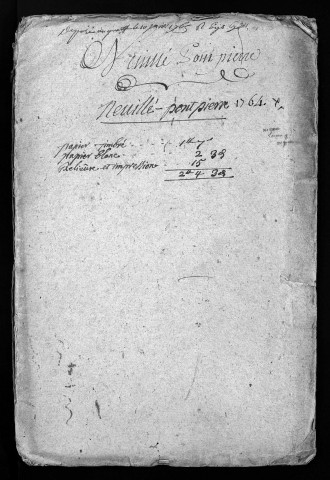 Neuillé Pont pierre
Neuillé - pont pierre 1764.
papier timbré 1ᵗᵗ 7
papier blanc 2 3ᵈ
Relieure et impression 15
2ᵗᵗ 4 3ᵈ